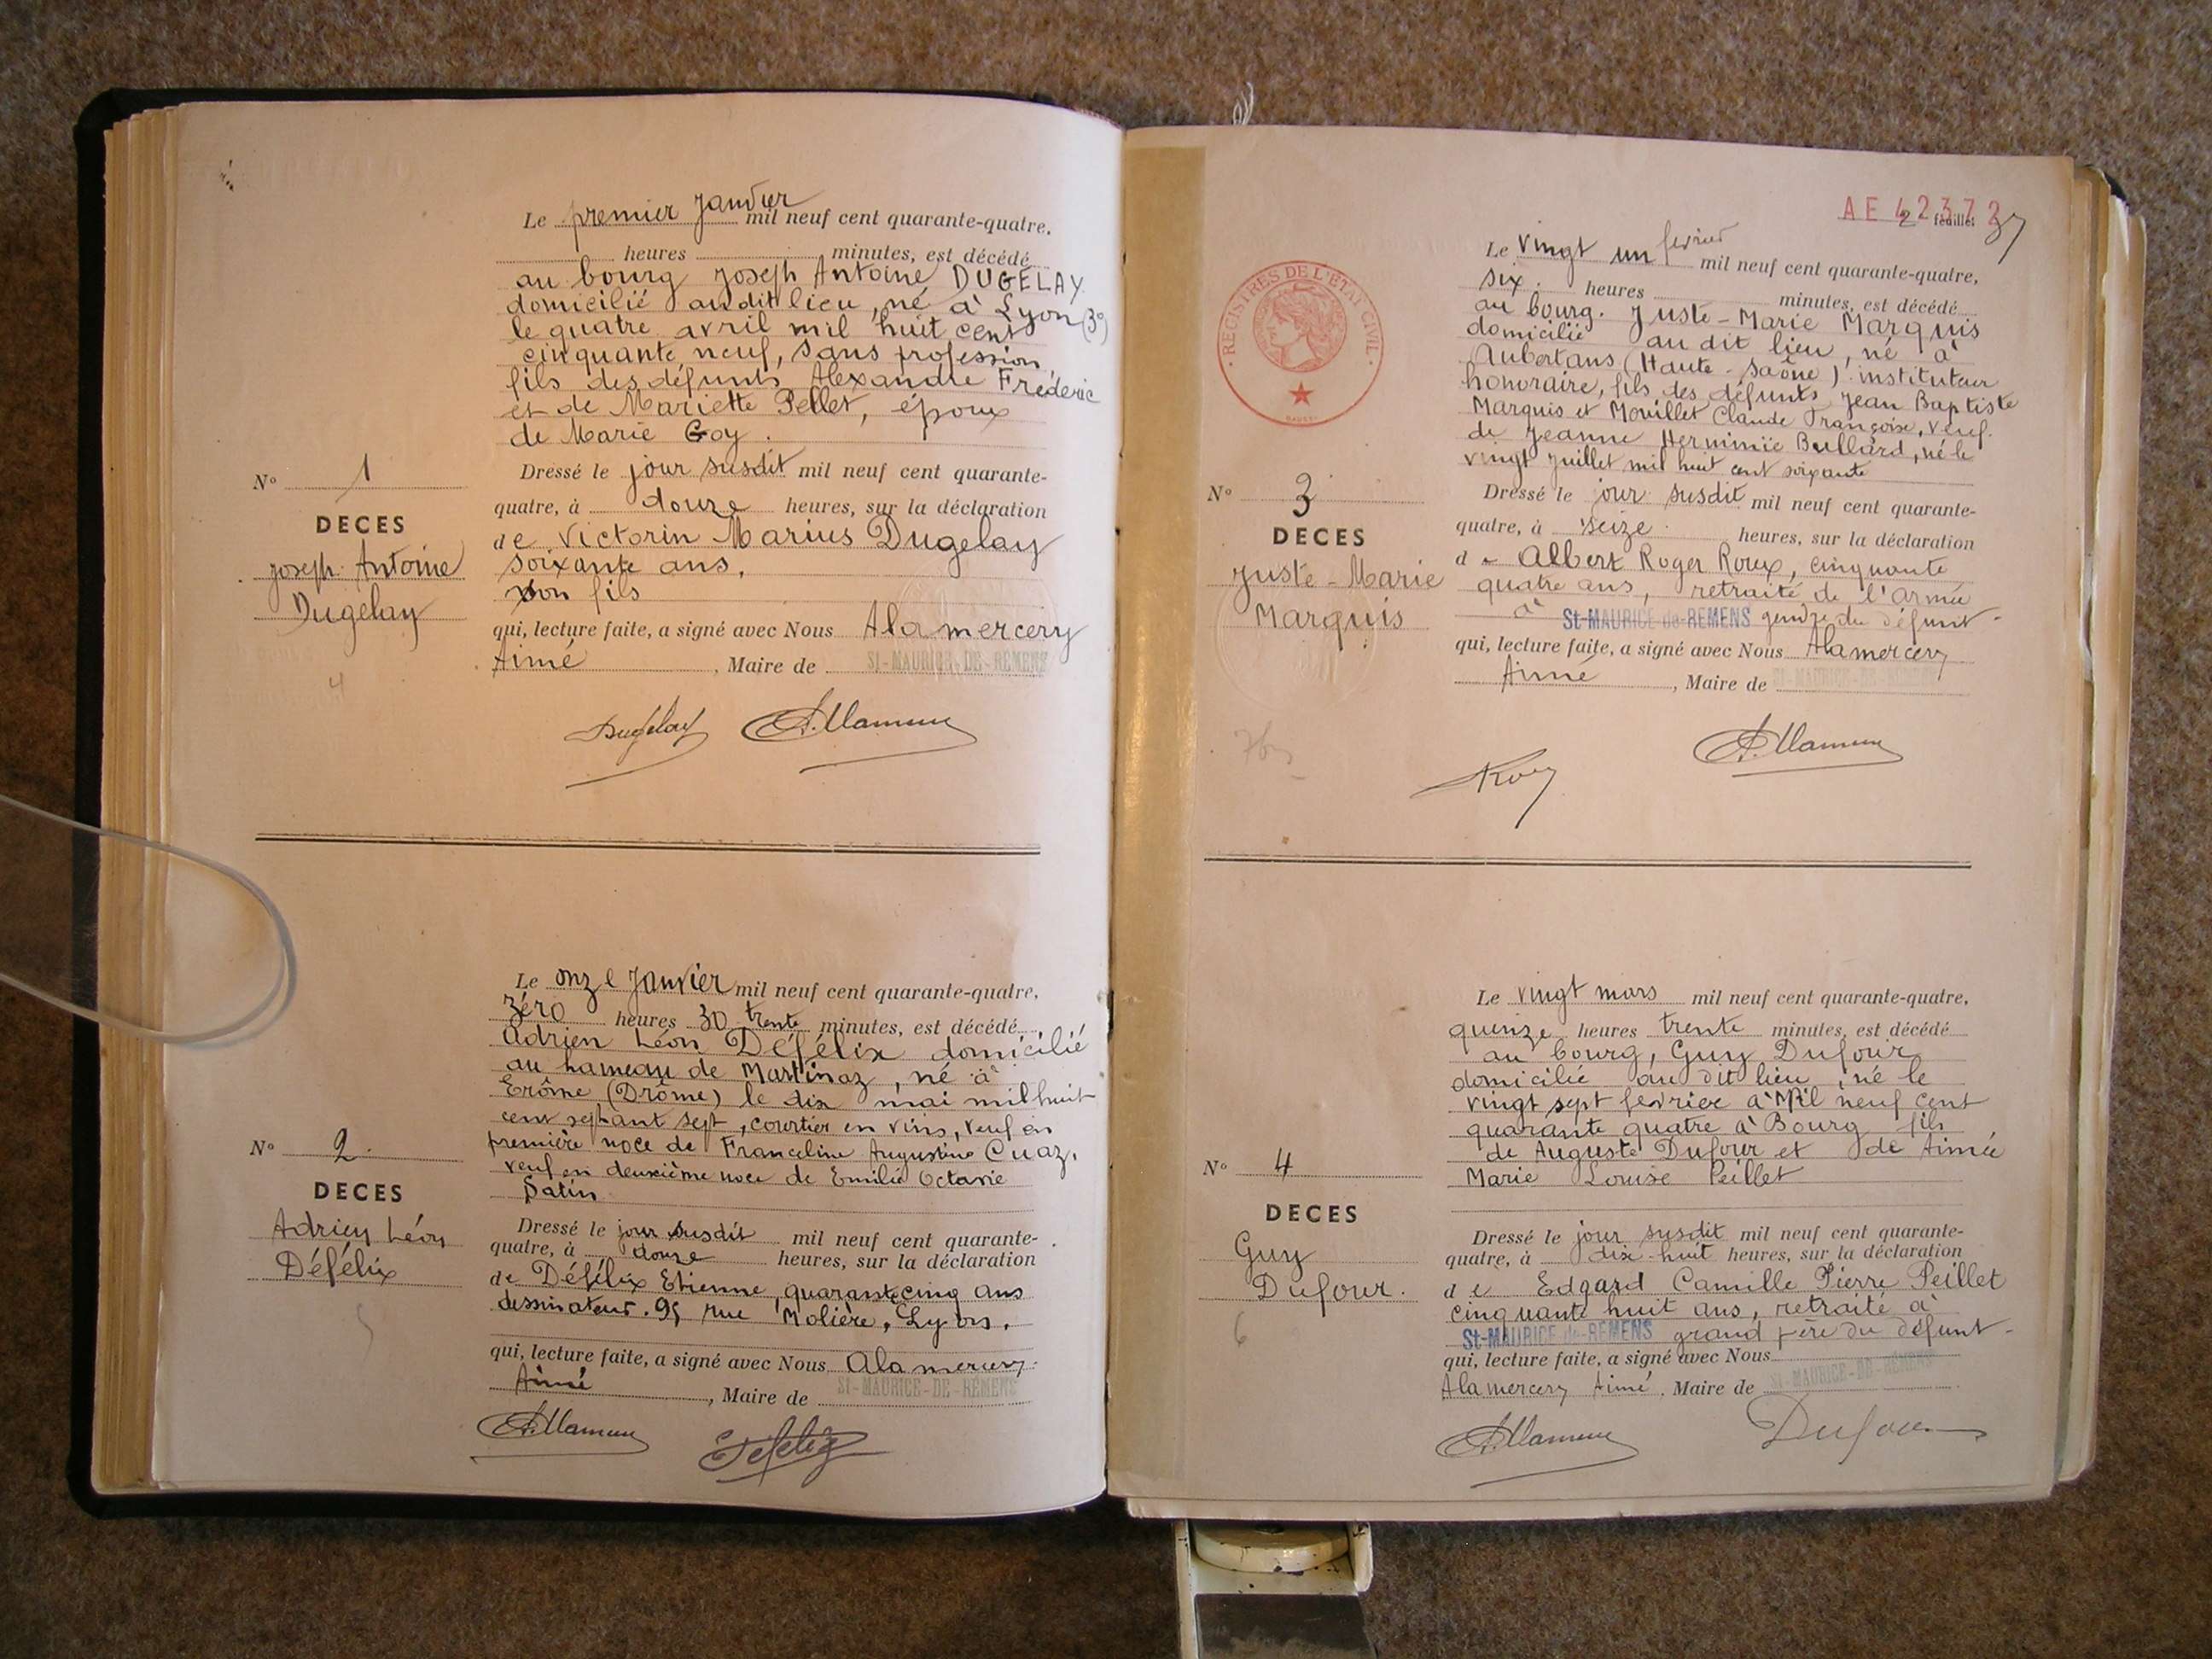 Le premier Janvier mil neuf cent quarante-quatre,
heures minutes, est décédé
au bourg Joseph Antoine DUGELAY
domicilié audit lieu, né à Lyon (3e)
le quatre avril mil huit cent
cinquante neuf, sans profession,
fils des défunts Alexandre Frédéric
et de Mariette Pellet, époux
de Marie Goy.
N° 1
DECES
Joseph Antoine
Dugelay
Dressé le jour susdit mil neuf cent quarante-
quatre, à douze heures, sur la déclaration
de Victorin Marius Dugelay
soixante ans,
son fils
qui, lecture faite, a signé avec Nous Alamercery
Aimé, Maire de ST-MAURICE-DE-REMENS
4
Dugelay
Le onze Janvier mil neuf cent quarante-quatre,
zéro heures 30 trente minutes, est décédé
Adrien Léon Défélix domicilié
au hameau de Martinaz, né à
Erôme (Drôme) le dix mai mil huit
cent septant sept, courtier en vins, veuf en
première noce de Franceline Augustine Cuaz,
veuf en deuxième noce de Emilie Octavie
Satin
N° 2
DECES
Adrien Léon
Défélix
5
Dressé le jour susdit mil neuf cent quarante-
quatre, à douze heures, sur la déclaration
de Défélix Etienne, quarante cinq ans
dessinateur. 95 rue Molière, Lyon.
qui, lecture faite, a signé avec Nous Alamercery
Aimé, Maire de ST-MAURICE-DE-REMENS
AE 42372
2 feuillet 37
REGISTRES DE L'ETAT CIVIL
Le vingt un février mil neuf cent quarante-quatre,
six heures minutes, est décédé
au bourg. Juste-Marie Marquis
domicilié au dit lieu, né à
Aubertans (Haute-Saône) instituteur
honoraire, fils des défunts Jean Baptiste
Marquis et Mouillet Claude Françoise, veuf
de Jeanne Herminie Bullard, né le
vingt juillet mil huit cent soixante
N° 3
DECES
Juste-Marie
Marquis
Dressé le jour susdit mil neuf cent quarante-
quatre, à seize heures, sur la déclaration
de Albert Roger Roux, cinquante
quatre ans, retraité de l'armée
à St-MAURICE-de-REMENS gendre du défunt
qui, lecture faite, a signé avec Nous Alamercery
Aimé, Maire de ST-MAURICE-DE-REMENS
Le vingt mars mil neuf cent quarante-quatre,
quinze heures trente minutes, est décédé
au bourg, Guy Dufour
domicilié au dit lieu, né le
vingt sept fevrier à Mil neuf cent
quarante quatre à Bourg fils
de Auguste Dufour et de Aimée
Marie Louise Peillet
N° 4
DECES
Guy
Dufour.
6
Dressé le jour susdit mil neuf cent quarante-
quatre, à dix-huit heures, sur la déclaration
de Edgard Camille Pierre Peillet
cinquante huit ans, retraité à
St-MAURICE-de-REMENS grand père du défunt
qui, lecture faite, a signé avec Nous
Alamercery Aimé, Maire de ST-MAURICE-DE-REMENS
Dufour